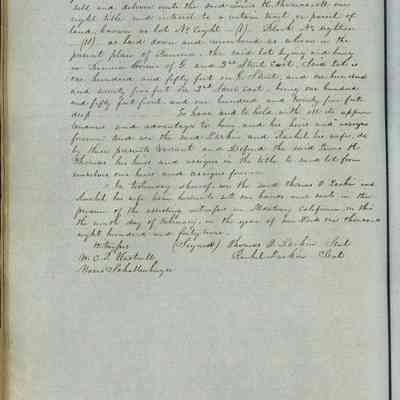 sell and deliver unto the said Lewis the Thomas all our
right title and interest to a certain tract or parcel of
land, known as lot No Eight (8). Block No eighteen
(18) as laid down and numbered as shown in the
present plan of Benicia. the said lot lying and being
on corner of G and 2nd Street East, said lot is
one hundred and fifty feet on G Street, and one hundred
and twenty five feet on 2nd Street East. being one hundred
and fifty feet front and one hundred and twenty five feet
deep To have and to hold with all its appur
tenances and advantages to him and his heirs and assigns
forever. And we the said Larkin and Rachel his wife, do
by these presents Warrant and Defend the said Lewis the
Thomas his heirs and assigns in the title to said lot from
ourselves our heirs and assigns forever.
In testimony whereof, we the said Thomas O Larkin and
Rachel his wife have hereunto set our hands and seals in the
presence of the subscribing witnesses in Monterey California, on this
the ninth day of February, in the year of our Lord one thousand
eight hundred and forty
Witnesses (Signed) Thomas O Larkin Seal
W. C. P. Hartnell Rachel Larkin Seal